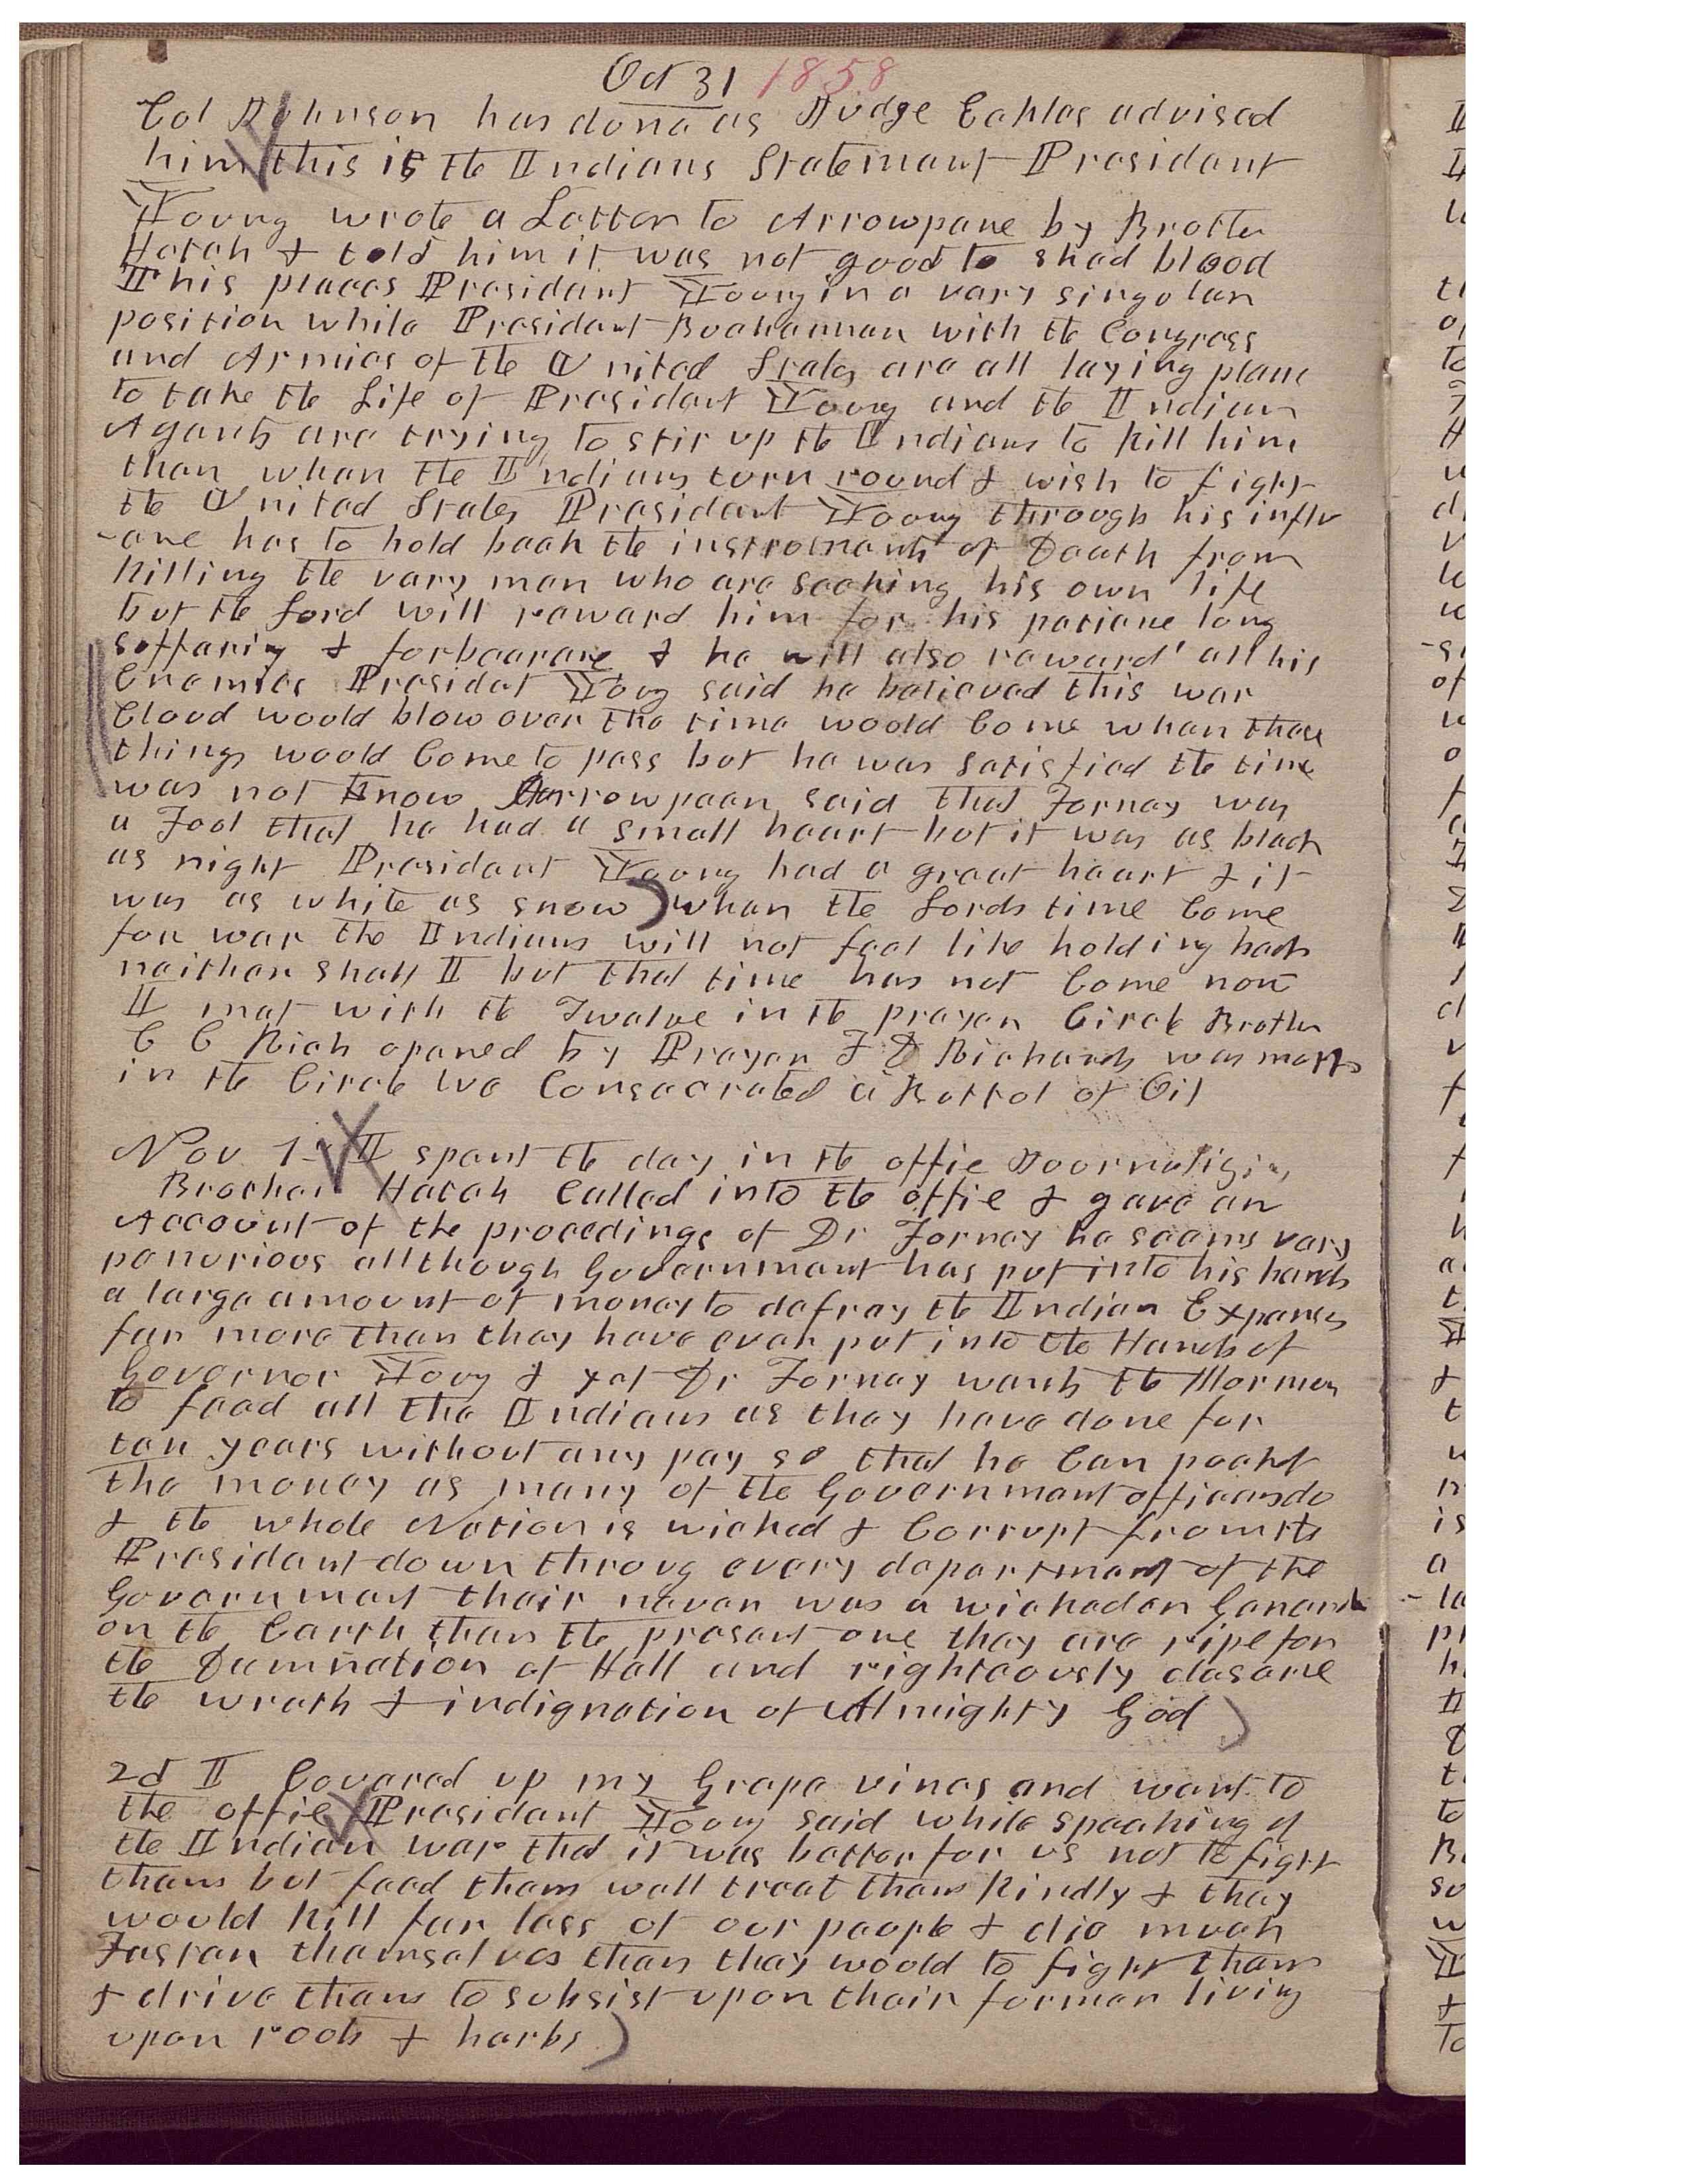 Oct 31 1858
Col Johnson has done as Judge Eckles advised
him this is the Indians Statement President
Young wrote a Letter to Arrowpane by Brother
Hatch & told him it was not good to shed blood
This places President Young in a very singular
position while President Buchannan with the Congress
and Armies of the United States are all laying plans
to take the Life of President Young and the Indian
Agents are trying to stir up the Indians to kill him
then when the Indians turn round & wish to fight
the United States President Young through his influ
-ance has to hold back the instruments of Death from
killing the very men who are seeking his own life
but the Lord will reward him for his patiance long
suffering & forbearance & he will also reward all his
Enemies Presidet Young said he believed this war
Cloud would blow over the time would Come when those
things would Come to pass but he was satisfied the time
was not know Arrowpeen said that Forney was
a Fool that he had a small heart but it was as black
as night President Young had a great heart & it
was as white as snow) when the Lords time Come
for war the Indians will not feel like holding back
neither shall I but that time has not Come now
I met with the Twelve in the prayer Circle Brother
C C Rich opened by Prayer F D Richards was mouth
in the Circle We Consecrated a Bottol of Oil
Nov 1 I spent the day in the office Journalizing
Brother Hatch Called into the office & gave an
Account of the procedings of Dr Forney he seems very
penurious allthough Government has put into his hands
a large amount of money to defray the Indian Expenses
far more than they have ever put into the Hands of
Governor Young & yet Dr Forney wants the Mormons
to feed all the Indians as they have done for
ten years without any pay so that he Can pocket
the money as many of the Government officers do
& the whole Nation is wicked & Corrupt from the
President down throug every department of the
Government their never was a wickeder Generat
on the Earth than the present one they are ripe for
the Damnation of Hell and righteously deserve
the wrath & indignation of Almighty God)
2d I Covered up my Grape vines and went to
the office President Young said while speaking of
the Indian war that it was better for us not to fight
them but feed them well treat them kindly & they
would kill far less of our people & die much
Faster themselves than they would to fight them
& drive them to subsist upon their former living
upon roots & herbs)